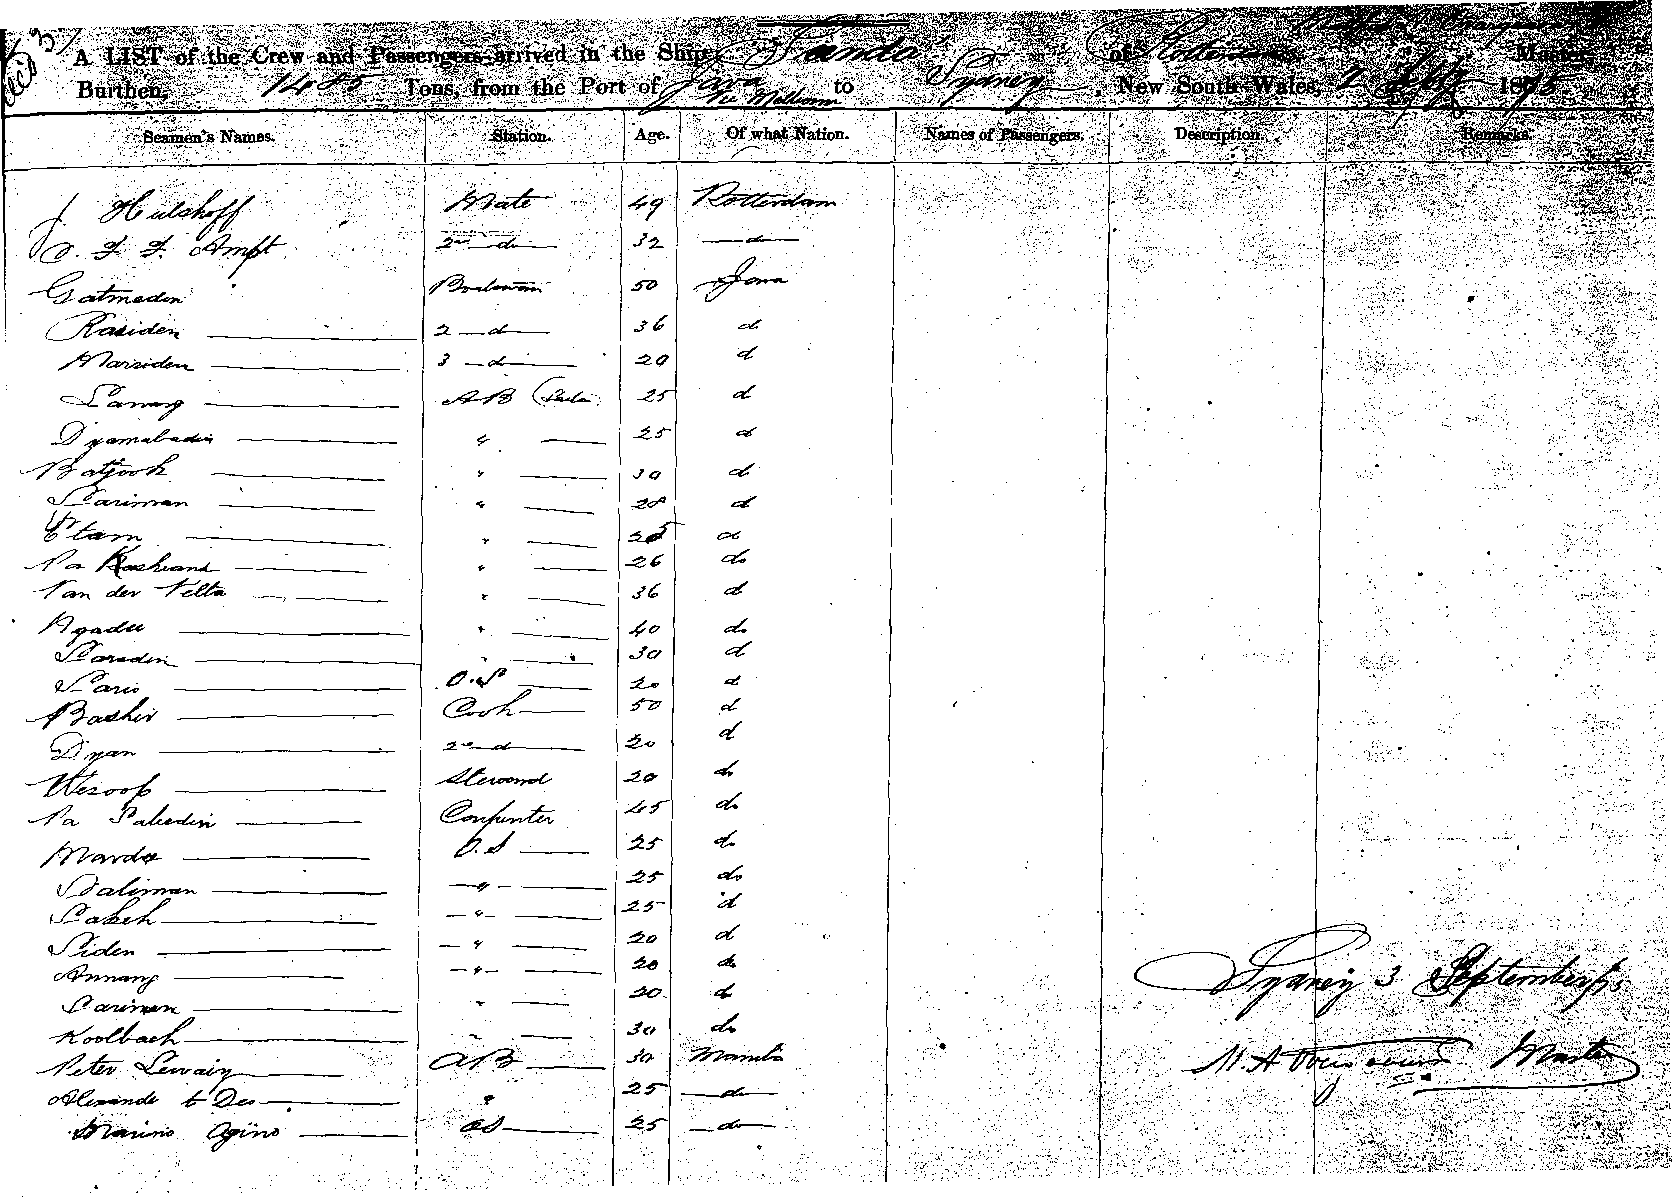 A LIST of the Crew and Passengers arrived in the Ship of Rotterdam Master,
Burthen, 1485 Tons, from the Port of Java via Melbourne to Sydney, New South Wales, 2 Sept 1875
Seamen's Names. Station. Age. Of what Nation. Names of Passengers. Description. Remarks.
J Hulshoff Mate 49 Rotterdam
F. F. Ampt 2nd d 32 d
Gatmedin Boatswain 50 Java
Rasiden 2 d 36 d
Marsiden 3 d 29 d
Lanang AB 25 d
Dyamabadin " 25 d
Batjook " 30 d
Sariman " 28 d
Etam " 25 d
Pa Kashians " 26 do
Van der Velta " 36 d
Ngadee " 40 do
Sarsdin " 30 d
Sario O.S 20 d
Basher Cook 50 d
Dyan 2nd d 20 d
Wesoop Steward 20 do
Pa Saledin Carpenter 45 do
Mardee O.S 25 do
Saliman " 25 do
Sakeh " 25 d
Siden " 20 d
Annang " 20 do
Sariman " 20 do
Koolbach " 30 do
Peter AB 30 Manila
Alexande " 25 do
Marino Agino OS 25 do
Sydney 3 September 75
Master